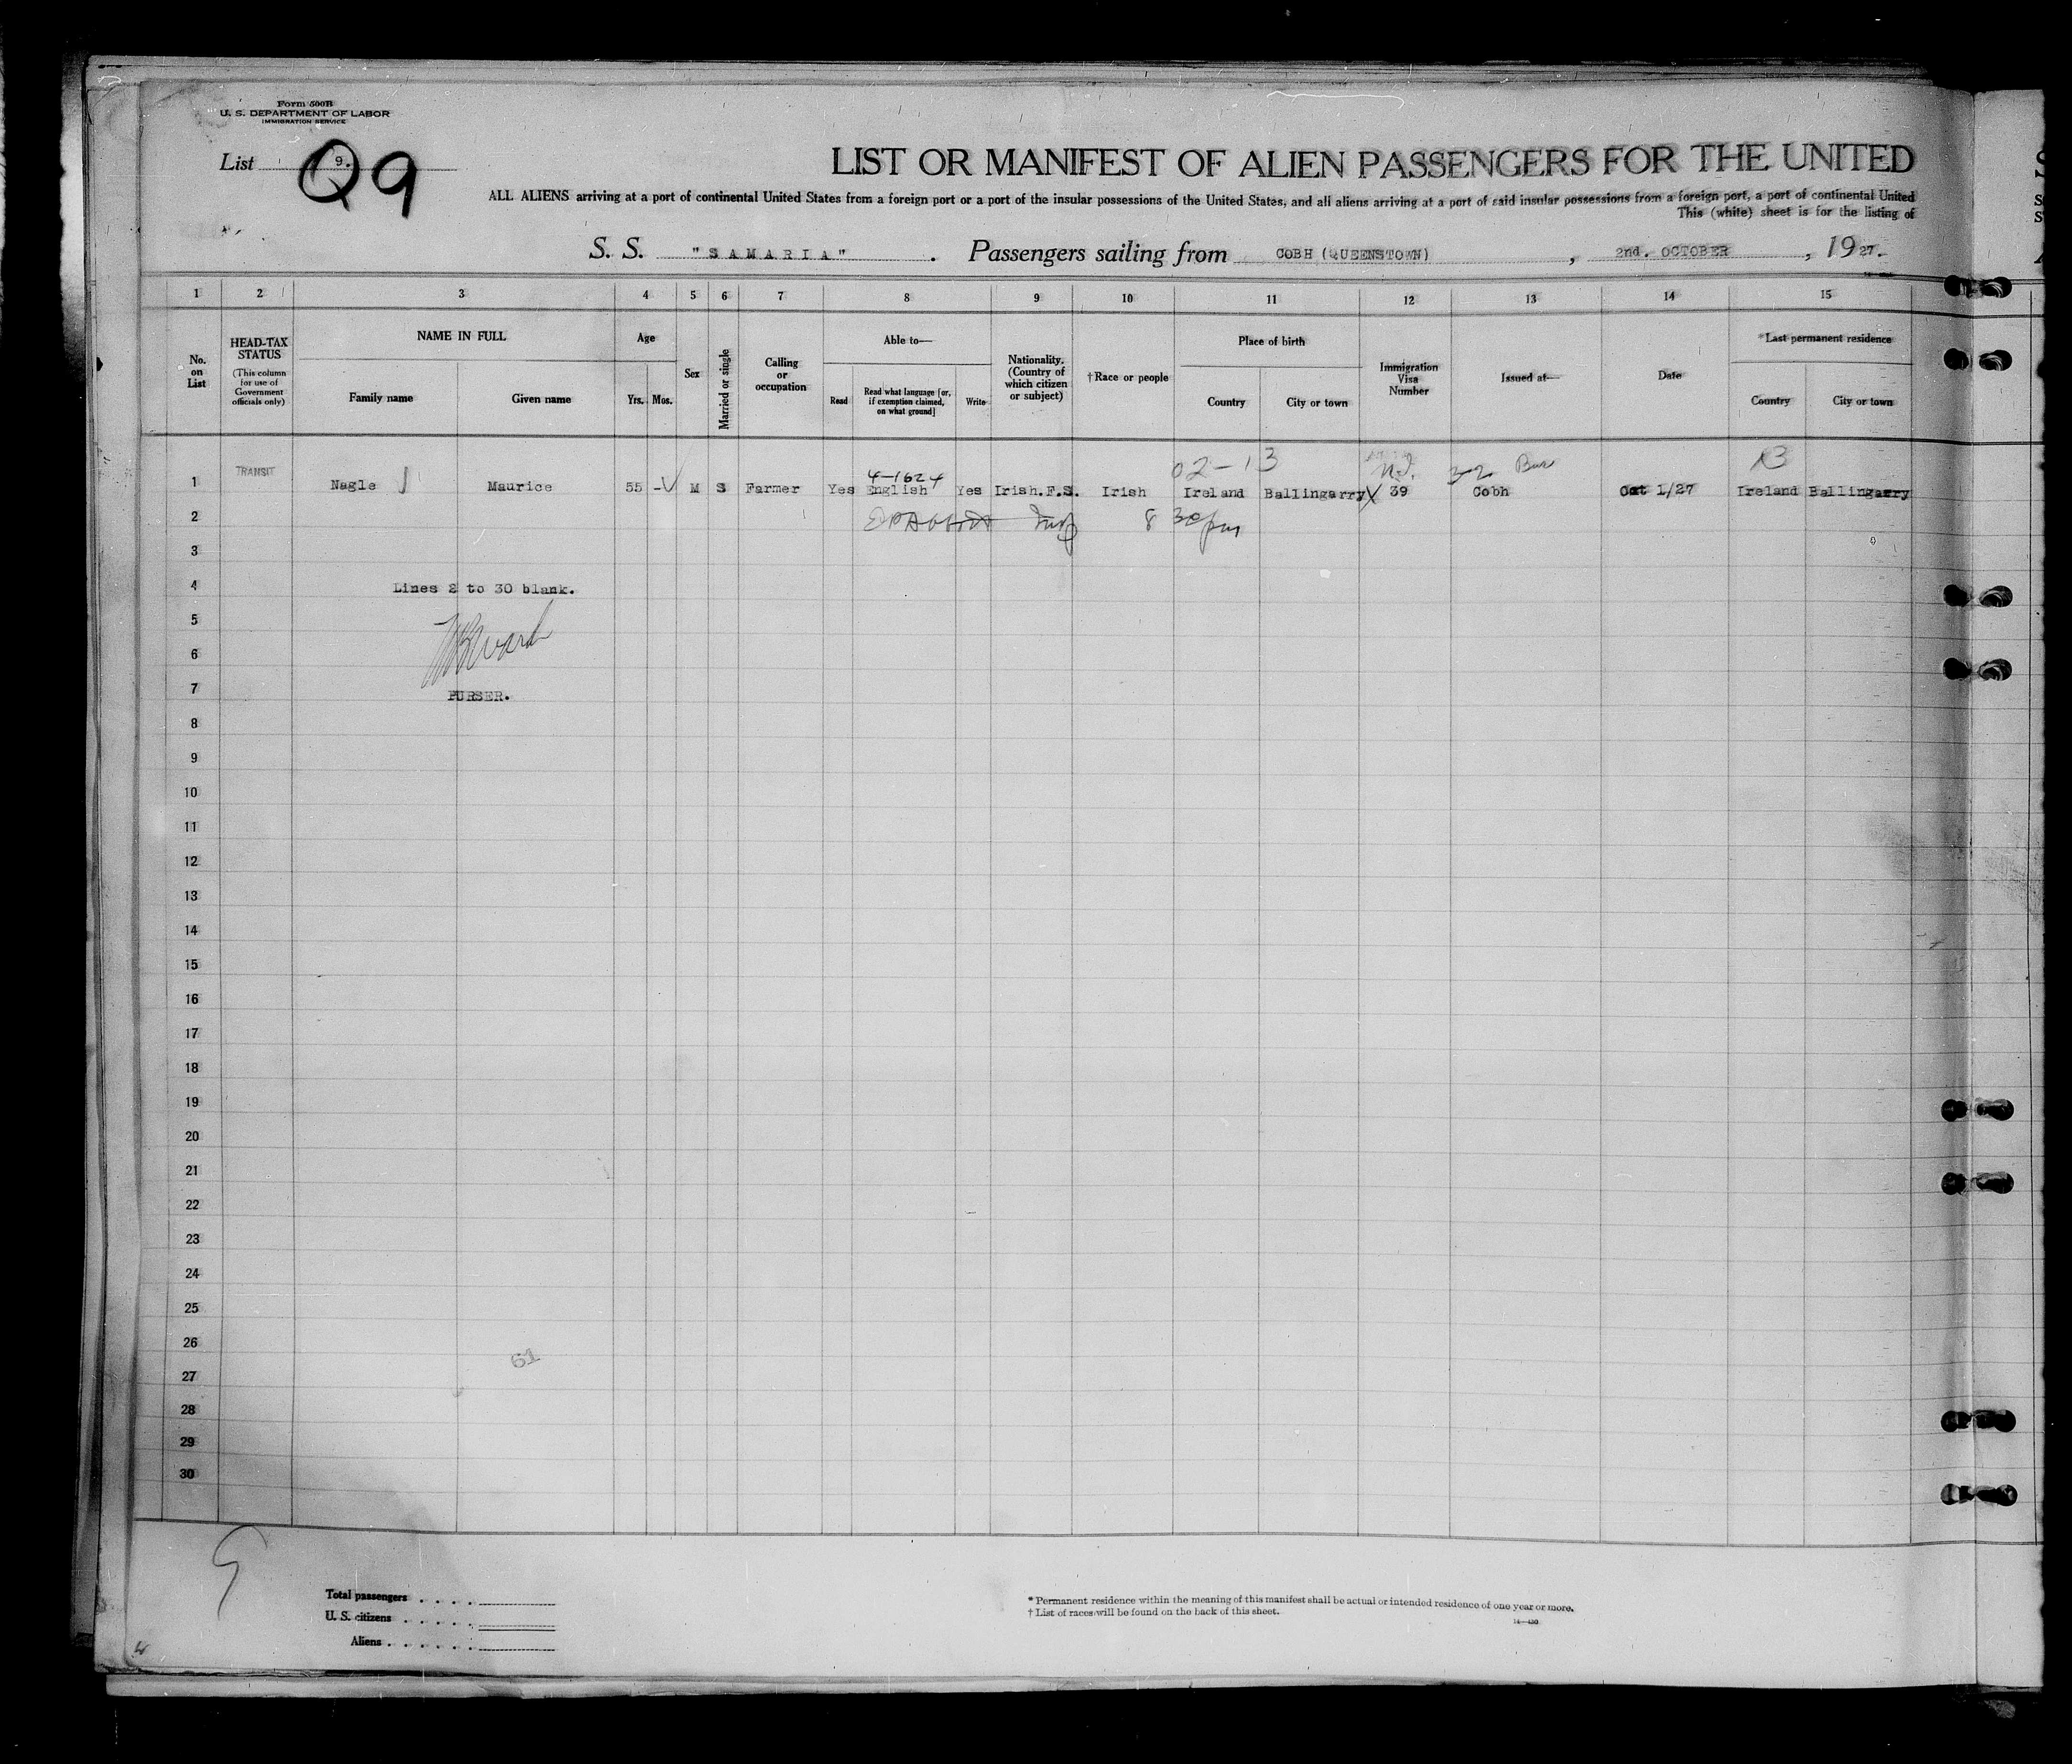 Form 500B
U. S. DEPARTMENT OF LABOR
IMMIGRATION SERVICE
List 9.
Q9
LIST OR MANIFEST OF ALIEN PASSENGERS FOR THE UNITED
ALL ALIENS arriving at a port of continental United States from a foreign port or a port of the insular possessions of the United States, and all aliens arriving at a port of said insular possessions from a foreign port, a port of continental United
This (white) sheet is for the listing of
S. S. "SAMARIA". Passengers sailing from COBH (QUEENSTOWN), 2nd. OCTOBER, 1927.
1 2 3 4 5 6 7 8 9 10 11 12 13 14 15
No. on List
HEAD-TAX STATUS
(This column for use of Government officials only)
NAME IN FULL
Family name
Given name
Age
Yrs. Mos.
Sex
Married or single
Calling or occupation
Able to—
Read
Read what language [or, if exemption claimed, on what ground]
Write
Nationality. (Country of which citizen or subject)
†Race or people
Place of birth
Country
City or town
Immigration Visa Number
Issued at—
Date
*Last permanent residence
Country
City or town
4-1624 02-13
1 TRANSIT Nagle Maurice 55 - M S Farmer Yes English Yes Irish.F.S. Irish Ireland Ballingarry 39 Cobh Oct 1/27 Ireland Ballingarry
2 8 30 pm
3
4 Lines 2 to 30 blank.
5
6 Ward
7 PURSER.
8
9
10
11
12
13
14
15
16
17
18
19
20
21
22
23
24
25
26
61
27
28
29
30
Total passengers
U. S. citizens
Aliens
* Permanent residence within the meaning of this manifest shall be actual or intended residence of one year or more.
† List of races will be found on the back of this sheet.